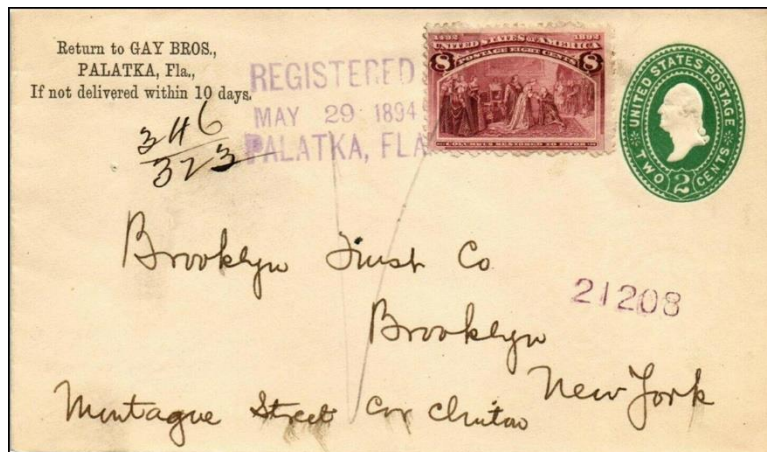 Return to GAY BROS.,
PALATKA, Fla.,
If not delivered within 10 days.
346
323
REGISTERED
MAY 29 1894
PALATKA, FLA
1492 1892
UNITED STATES OF AMERICA
POSTAGE EIGHT CENTS
8 8
COLUMBUS RESTORED TO FAVOR
UNITED STATES POSTAGE
TWO 2 CENTS
Brooklyn Trust Co
21208
Brooklyn
New York
Montague Street Cor Clinton